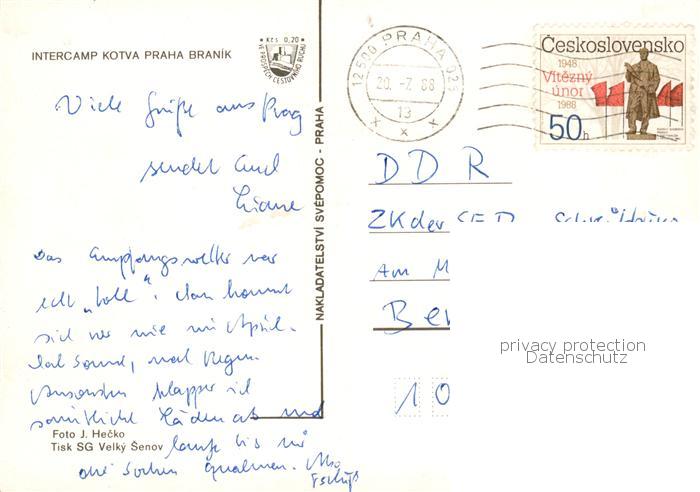 INTERCAMP KOTVA PRAHA BRANÍK
Kčs 0,20
VE PROSPĚCH CESTOVNÍHO RUCHU
Viele Grüße aus Prag
sendet Euch
Liane
Das Empfangswetter war
echt „toll“. Man kommt
sich vor wie im April.
Mal Sonne, mal Regen.
Ansonsten klapper ich
sämtliche Läden ab und
laufe bis mir
die Socken qualmen.
Tschüß
Foto J. Hečko
Tisk SG Velký Šenov
NAKLADATELSTVÍ SVÉPOMOC - PRAHA
12500 PRAHA 025
20. -7. 88
13
x x x
Československo
1948
Vítězný
únor
1988
50h
DDR
ZK der SED
Am M
Be
10
privacy protection
Datenschutz